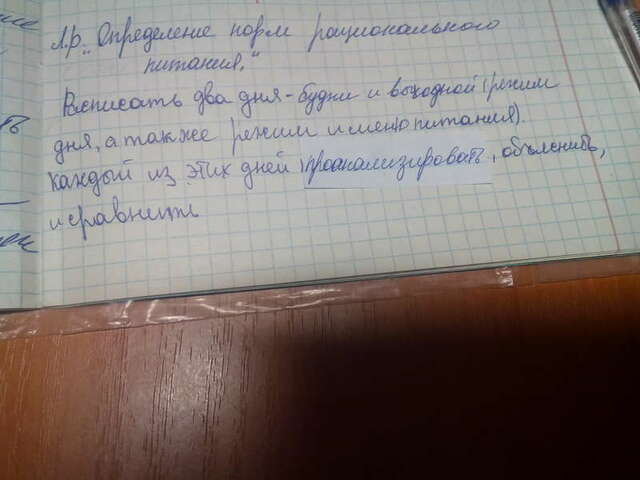 Л.р „Определение норм рационального
питания."
Расписать два дня - будни и выходной (режим
дня, а также режим и меню питания).
Каждый из этих дней проанализировать, объяснить,
и сравнить